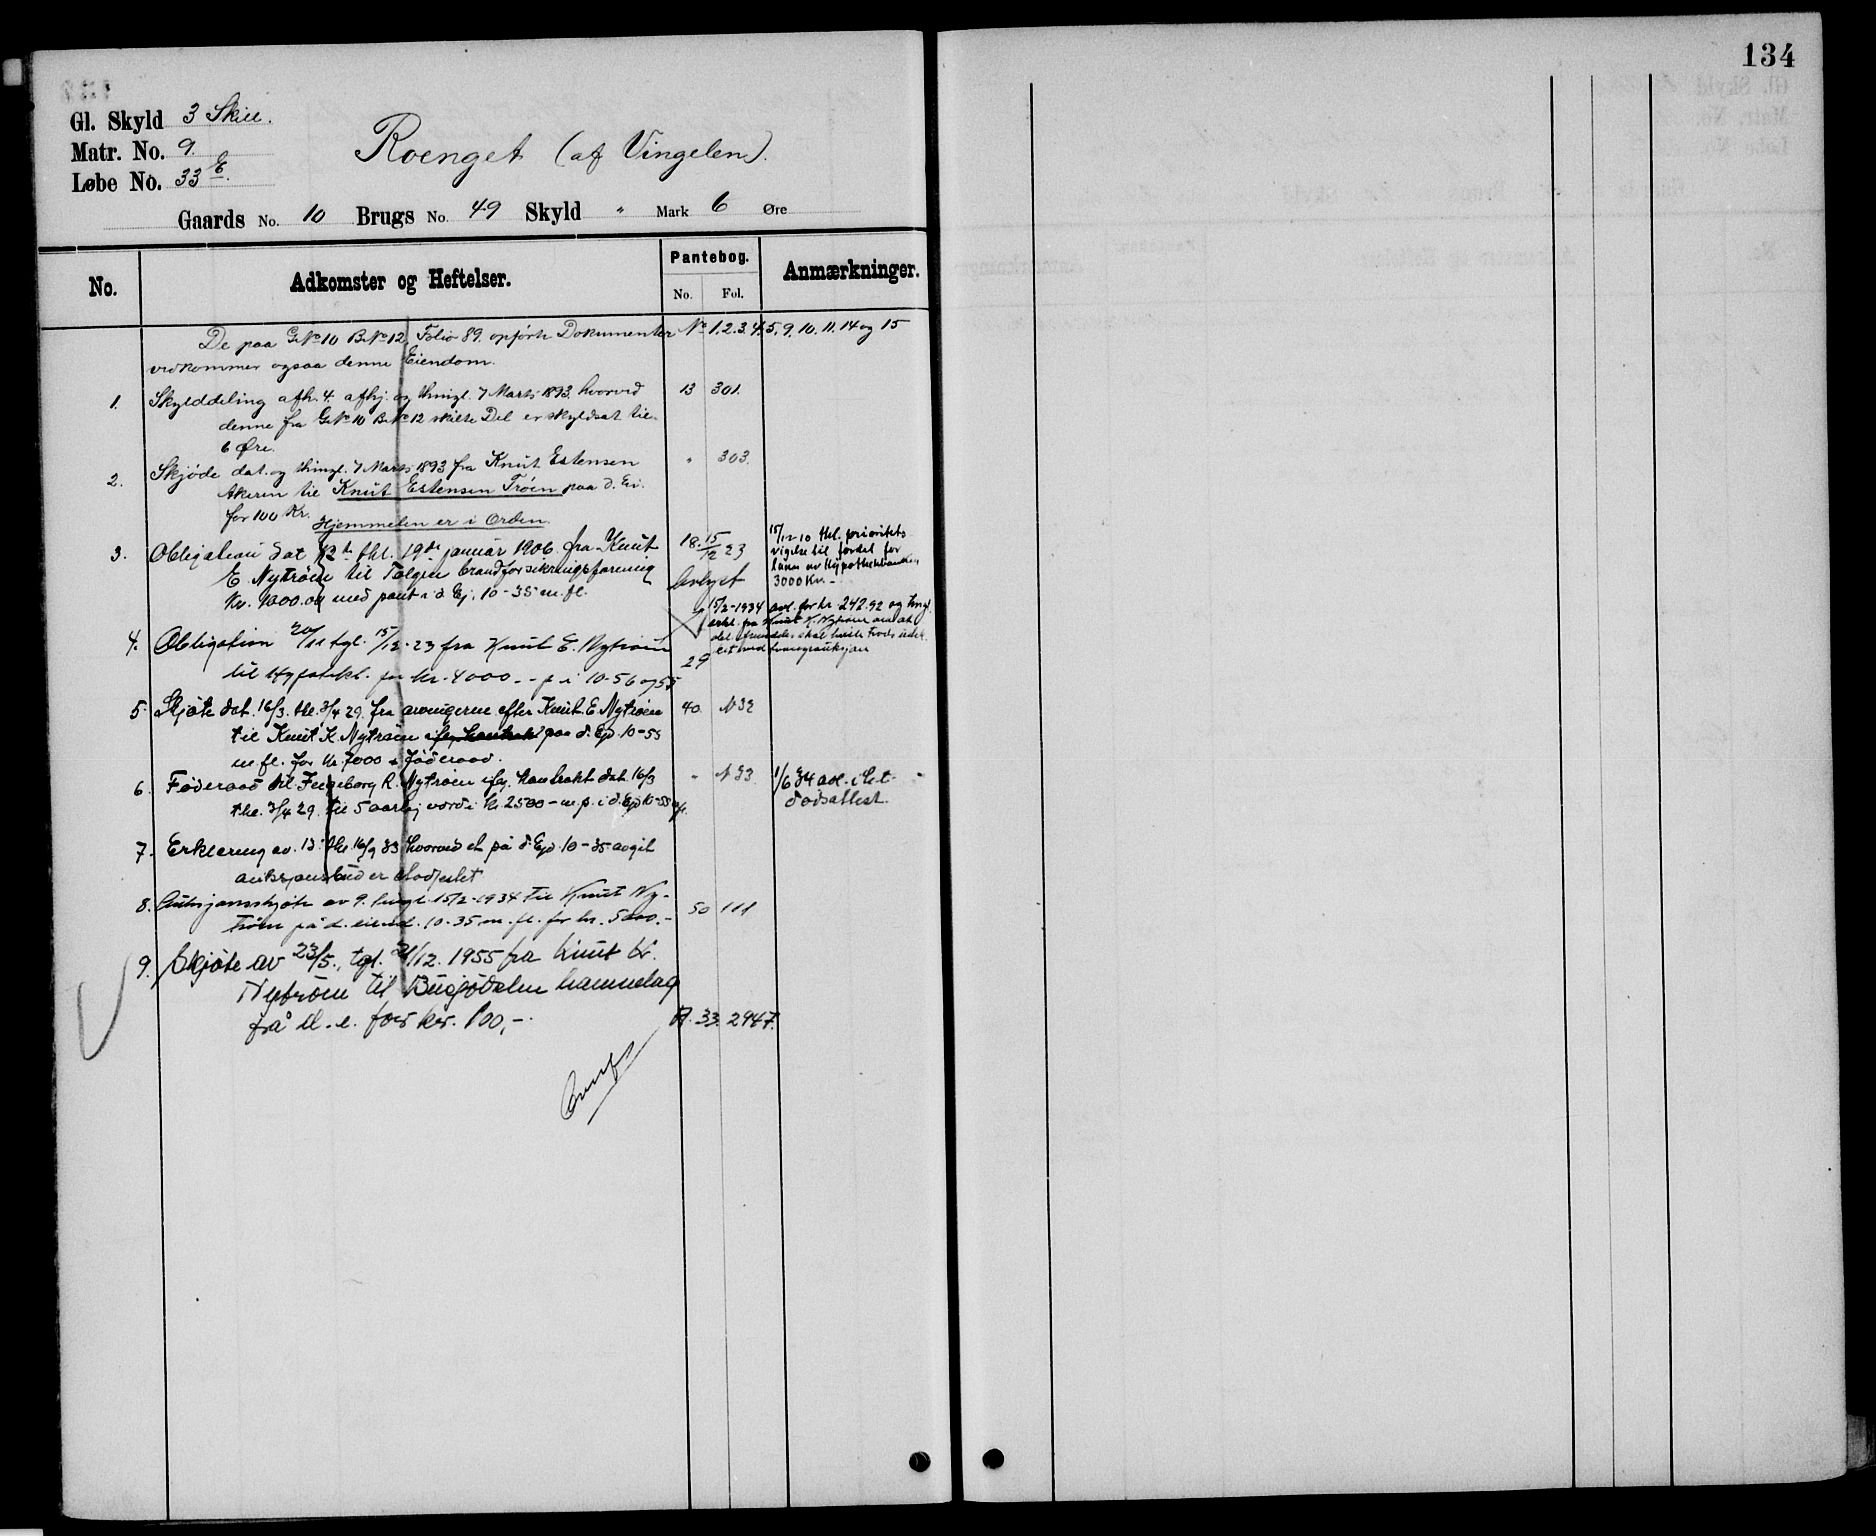 134
Gl. Skyld 3 Skill.
Matr. No. 9.
Løbe No. 33 E.
Roenget (af Vingelen).
Gaards No. 10 Brugs No. 49 Skyld " Mark 6 Øre
No. Adkomster og Heftelser. Pantebog. No. Fol. Anmærkninger.
De paa GNo 10 BNo 12, Folio 89. opførte Dokumenter No 1.2.3.4.5.9.10.11.14 og 15
vedkommer ogsaa denne Eiendom.
1. Skylddeling afh. 4. afhj. og thingl. 7 Marts 1893, hvorved 13 301.
denne fra GNo 10 BNo 12 skilte Del er skyldsat til
6 Øre.
2. Skjøde dat. og thingl. 7 Marts 1893 fra Knut Estensen " 303.
Akeren til Knut Estensen Trøen paa d. Ei.
for 100 Kr. Hjemmelen er i Orden.
3. Obligation dat 12te thl. 19de januar 1906 fra Knut 18. 15/12 23
E. Nytrøen til Tolgen brandforsikringsforening Avlyst
Kr. 1000.00 med pant i d. Ej. 10-35 m. fl.
15/12 10 thl. prioritets-
vigelse til fordel for
laan av Hypothekbanken
3000 Kr. -
4. Obligation 20/11 tgl. 15/12-23 fra Knut E. Nytrøen 29
til Hypotekb. for kr. 4000.- p. i 10-56 og 55
15/2-1934 avl. for kr. 242.92 og tingl.
erkl. fra Knut K. Nytrøen om at
det skal hvile
ved tvangsauksjon
5. Skjøte dat. 16/3. thl. 3/4 29. fra arvingerne efter Knut E. Nytrøen 40 N 32
til Knut K. Nytrøen iflg. kontrakt paa d. Ejd. 10-55
m fl. for kr 7000 + føderaad.
6. Føderaad til Ingeborg R. Nytrøen ifg. kontrakt dat. 16/3 " N 33. 1/6 34 avl. i flt.
thl. 3/4 29. til 5 aarlig værdi kr. 2500 - m. p. i d. Ejd 10-55 m fl. dødsattest.
7. Erklæring av 13. thl. 16/9 33 hvorved et på d. Ejd. 10-35 avgit
auksjonsbud er stadfestet
8. Auksjonsskjøte av 9. tingl. 15/2-1934 til Knut Ny- 50 111
trøen på d. eiend. 10-35 m. fl. for kr. 5000.-
9. Skjøte av 23/5., tgl. 21/12. 1955 fra Knut K.
Nytrøen til Busjødalen hamnelag
frå d. e. for kr. 100,-. A. 33. 2947.